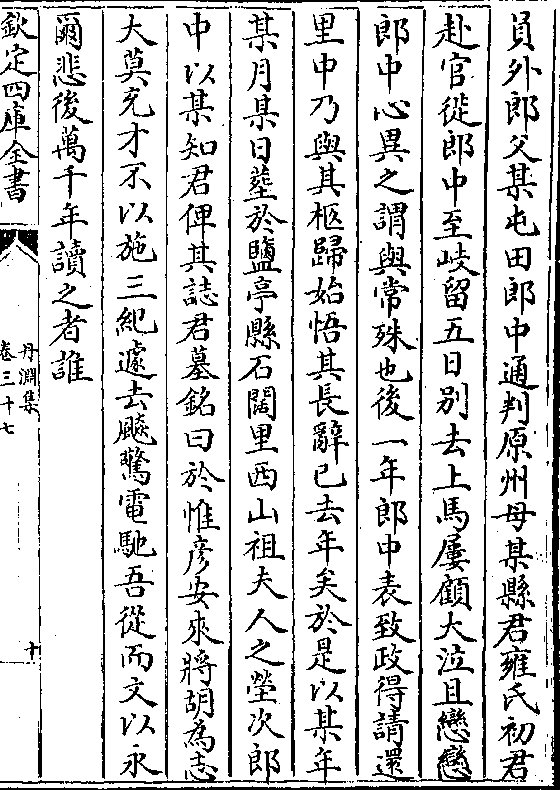 員外郎父某屯田郎中通判原州母某縣君雍氏初君
赴官從郎中至岐留五日别去上馬屢顧大泣且戀戀
郎中心異之謂與常殊也後一年郎中表致政得請還
里中乃與其柩歸始悟其長辭已去年矣於是以某年
某月某日塟於鹽亭縣石闊里西山祖夫人之塋次郎
中以某知君俾其誌君墓銘曰於惟彦安來將胡為志
大莫充才不以施三紀遽去飈驚電馳吾從而文以永
爾悲後萬千年讀之者誰
欽定四庫全書
丹淵集
卷三十七
十